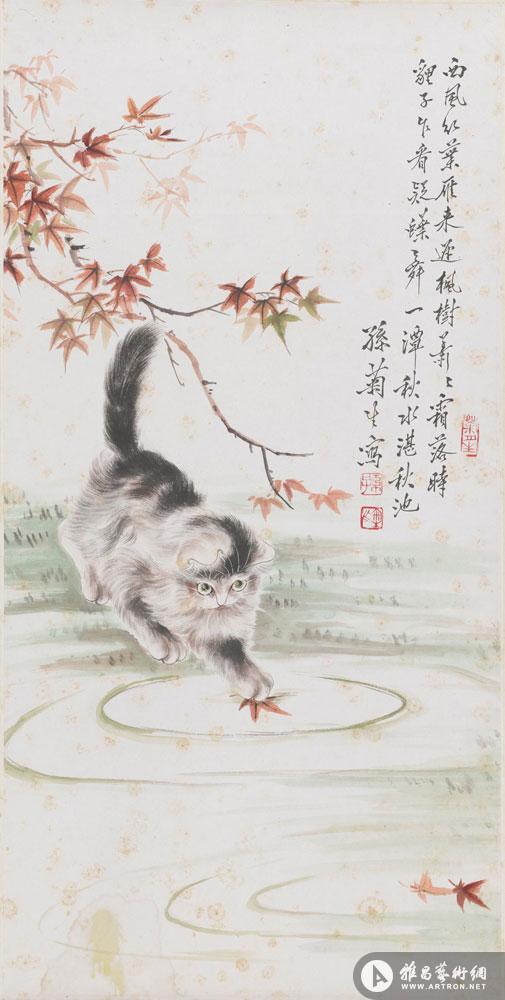 西風紅葉雁來遲楓樹蕭〻霜落時
貍子乍看疑蝶舞一潭秋水湛秋池
孫菊生寫
雅昌藝術網
WWW.ARTRON.NET